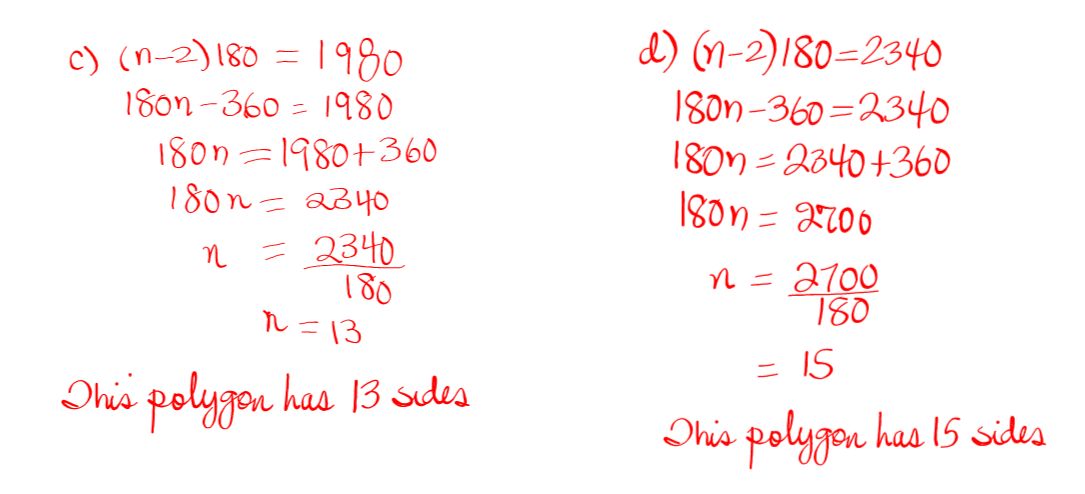 c) (n-2)180 = 1980
180n - 360 = 1980
180n = 1980+360
180n = 2340
n = 2340
180
n = 13
This polygon has 13 sides
d) (n-2)180=2340
180n-360=2340
180n=2340+360
180n = 2700
n = 2700
180
= 15
This polygon has 15 sides